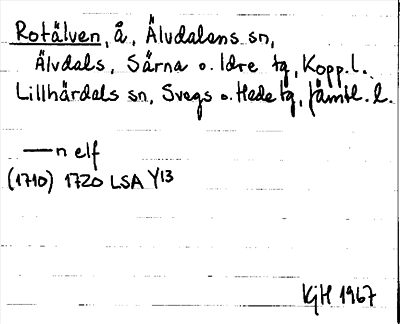 Rotälven, å, Älvdalens sn,
Älvdals, Särna o. Idre tg, Kopp.l.
Lillhärdals sn, Svegs o. Hede tg, Jämtl. l.
——n elf
(1710) 1720 LSA Y13
KjH 1967